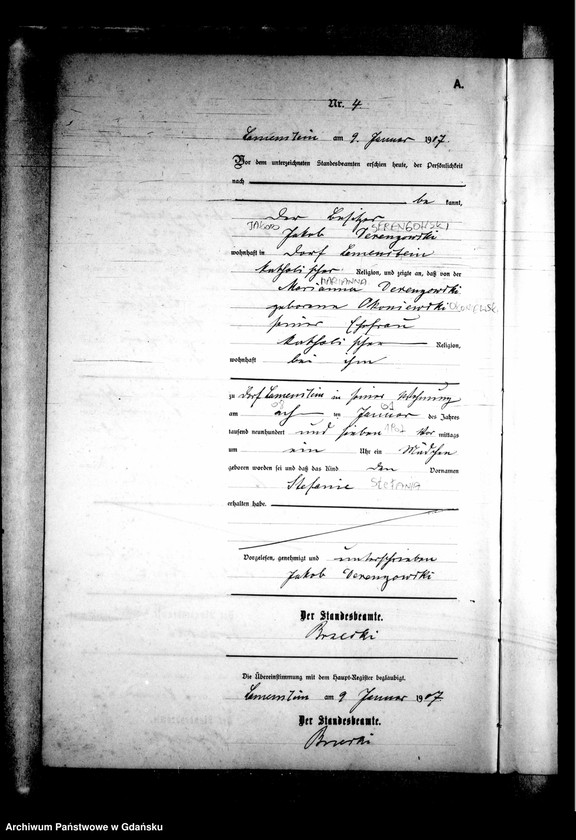 A.
Nr. 4
Lemenstein am 9. Januar 1907.
Vor dem unterzeichneten Standesbeamten erschien heute, der Persönlichkeit
nach
be kannt,
der Besitzer
JAKOB SERENGOWSKI
Jakob Serengowski
wohnhaft in Dorf Lemenstein
katholischer Religion, und zeigte an, daß von der
MARIANNA
Marianna Serengowski
geborene Okoniewski
seiner Ehefrau
katholischer Religion,
wohnhaft bei ihm
zu Dorf Lemenstein in seiner Wohnung
08 01
am acht ten Januar des Jahres
tausend neunhundert und sieben 1907 Vor mittags
um ein Uhr ein Mädchen
geboren worden sei und daß das Kind den Vornamen
Stefanie STEFANIA
erhalten habe.
Vorgelesen, genehmigt und unterschrieben
Jakob Serengowski
Der Standesbeamte.
Brzeski
Die Übereinstimmung mit dem Haupt-Register beglaubigt.
Lemenstein am 9 Januar 1907
Der Standesbeamte.
Brzeski
Archiwum Państwowe w Gdańsku